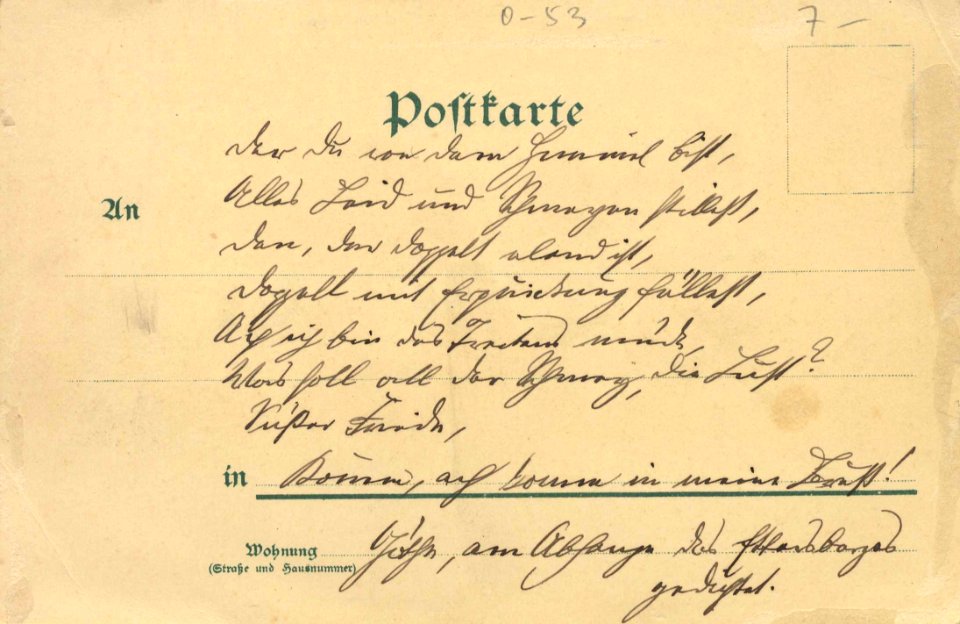 0-53 7-
Postkarte
Der du von dem Himmel bist,
Alles Leid und Schmerzen stillest,
Den, der doppelt elend ist,
Doppelt mit Erquickung füllest,
An
Ach ich bin des Treibens müde,
Was soll all der Schmerz, die Lust?
Süßer Friede,
in Komm, ach komm in meine Brust!
Wohnung Göthe, am Abhange des Ettersberges
(Straße und Hausnummer)
gedichtet.